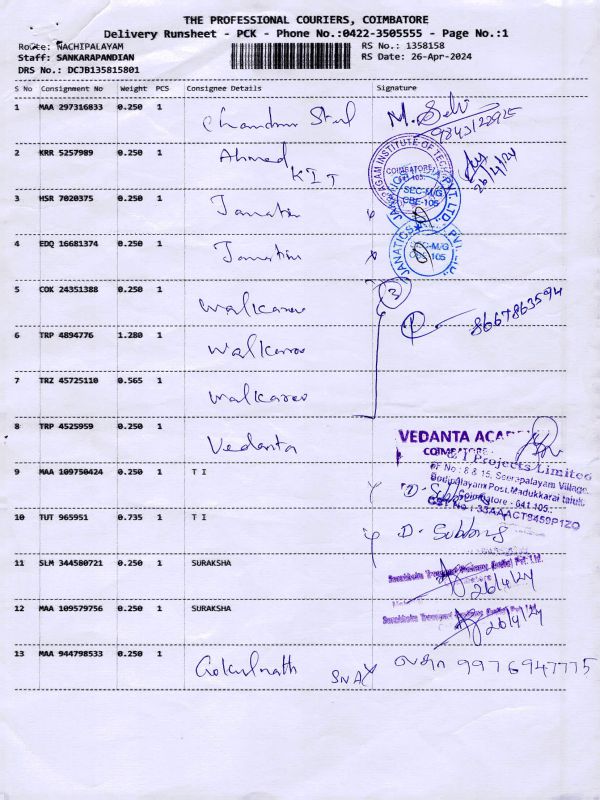 THE PROFESSIONAL COURIERS, COIMBATORE
Delivery Runsheet - PCK - Phone No.:0422-3505555 - Page No.:1
Route: NACHIPALAYAM
RS No.: 1358158
Staff: SANKARAPANDIAN
RS Date: 26-Apr-2024
DRS No.: DCJB135815801
S No Consignment No Weight PCS Consignee Details Signature
1 MAA 297316833 0.250 1 M. Selvi
2 KRR 5257989 0.250 1 Ahmed KIT 26/4/24
INSTITUTE OF TECH
COIMBATORE
3 HSR 7020375 0.250 1
SEC-M/G
CBE-105
4 EDQ 16681374 0.250 1
JANATICS PVT. LTD.
SEC-M/G
105
5 COK 24351388 0.250 1 3
8667863594
6 TRP 4894776 1.280 1
7 TRZ 45725110 0.565 1
8 TRP 4525959 0.250 1 Vedanta
VEDANTA
COIMBATORE
Projects Limited
SF No : 8 & 15, Seerapalayam Village,
Bodipalayam Post, Madukkarai taluk,
Coimbatore - 641 105.
GST No : 33AAACT9459P1ZQ
9 MAA 109750424 0.250 1 T I
10 TUT 965951 0.735 1 T I
11 SLM 344580721 0.250 1 SURAKSHA 26/4/24
12 MAA 109579756 0.250 1 SURAKSHA 26/4/24
13 MAA 944798533 0.250 1 Gokulnath 9976947775